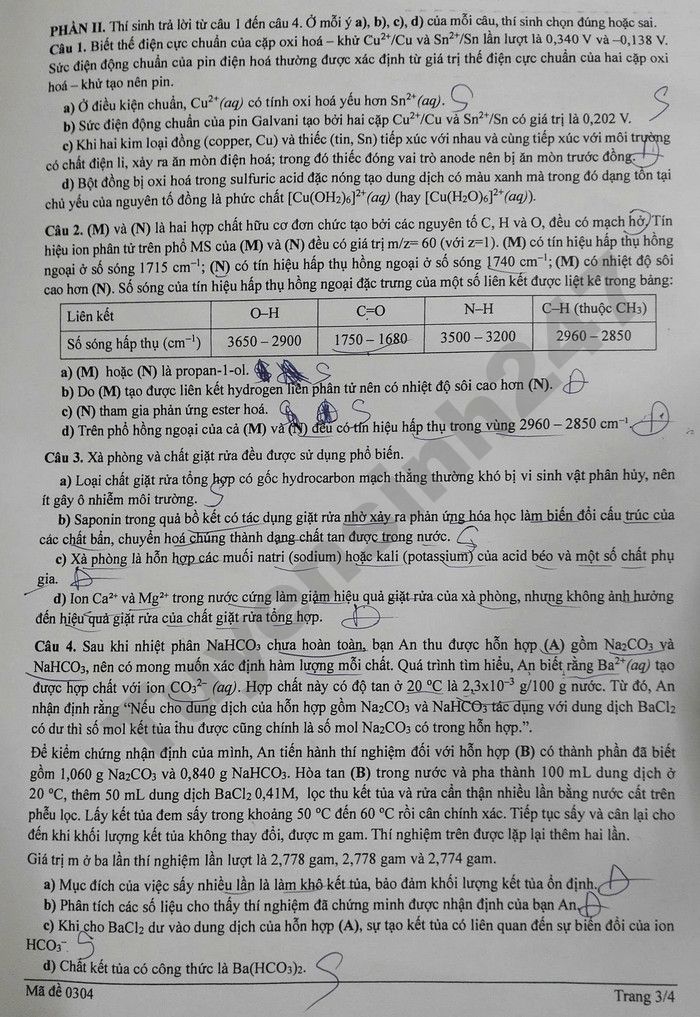 PHẦN II. Thí sinh trả lời từ câu 1 đến câu 4. Ở mỗi ý a), b), c), d) của mỗi câu, thí sinh chọn đúng hoặc sai.
Câu 1. Biết thế điện cực chuẩn của cặp oxi hoá – khử Cu²⁺/Cu và Sn²⁺/Sn lần lượt là 0,340 V và –0,138 V.
Sức điện động chuẩn của pin điện hoá thường được xác định từ giá trị thế điện cực chuẩn của hai cặp oxi
hoá – khử tạo nên pin.
a) Ở điều kiện chuẩn, Cu²⁺(aq) có tính oxi hoá yếu hơn Sn²⁺(aq). S
b) Sức điện động chuẩn của pin Galvani tạo bởi hai cặp Cu²⁺/Cu và Sn²⁺/Sn có giá trị là 0,202 V. S
c) Khi hai kim loại đồng (copper, Cu) và thiếc (tin, Sn) tiếp xúc với nhau và cùng tiếp xúc với môi trường
có chất điện li, xảy ra ăn mòn điện hoá; trong đó thiếc đóng vai trò anode nên bị ăn mòn trước đồng. Đ
d) Bột đồng bị oxi hoá trong sulfuric acid đặc nóng tạo dung dịch có màu xanh mà trong đó dạng tồn tại
chủ yếu của nguyên tố đồng là phức chất [Cu(OH2)6]²⁺(aq) (hay [Cu(H2O)6]²⁺(aq)).
Câu 2. (M) và (N) là hai hợp chất hữu cơ đơn chức tạo bởi các nguyên tố C, H và O, đều có mạch hở. Tín
hiệu ion phân tử trên phổ MS của (M) và (N) đều có giá trị m/z= 60 (với z=1). (M) có tín hiệu hấp thụ hồng
ngoại ở số sóng 1715 cm⁻¹; (N) có tín hiệu hấp thụ hồng ngoại ở số sóng 1740 cm⁻¹; (M) có nhiệt độ sôi
cao hơn (N). Số sóng của tín hiệu hấp thụ hồng ngoại đặc trưng của một số liên kết được liệt kê trong bảng:
Liên kết O–H C=O N–H C–H (thuộc CH3)
Số sóng hấp thụ (cm⁻¹) 3650 – 2900 1750 – 1680 3500 – 3200 2960 – 2850
a) (M) hoặc (N) là propan-1-ol. S
b) Do (M) tạo được liên kết hydrogen liên phân tử nên có nhiệt độ sôi cao hơn (N). Đ
c) (N) tham gia phản ứng ester hoá. S
d) Trên phổ hồng ngoại của cả (M) và (N) đều có tín hiệu hấp thụ trong vùng 2960 – 2850 cm⁻¹. Đ
Câu 3. Xà phòng và chất giặt rửa đều được sử dụng phổ biến.
a) Loại chất giặt rửa tổng hợp có gốc hydrocarbon mạch thẳng thường khó bị vi sinh vật phân hủy, nên
ít gây ô nhiễm môi trường. S
b) Saponin trong quả bồ kết có tác dụng giặt rửa nhờ xảy ra phản ứng hóa học làm biến đổi cấu trúc của
các chất bẩn, chuyển hoá chúng thành dạng chất tan được trong nước. S
c) Xà phòng là hỗn hợp các muối natri (sodium) hoặc kali (potassium) của acid béo và một số chất phụ
gia. Đ
d) Ion Ca²⁺ và Mg²⁺ trong nước cứng làm giảm hiệu quả giặt rửa của xà phòng, nhưng không ảnh hưởng
đến hiệu quả giặt rửa của chất giặt rửa tổng hợp. Đ
Câu 4. Sau khi nhiệt phân NaHCO3 chưa hoàn toàn, bạn An thu được hỗn hợp (A) gồm Na2CO3 và
NaHCO3, nên có mong muốn xác định hàm lượng mỗi chất. Quá trình tìm hiểu, An biết rằng Ba²⁺(aq) tạo
được hợp chất với ion CO3²⁻ (aq). Hợp chất này có độ tan ở 20 °C là 2,3x10⁻³ g/100 g nước. Từ đó, An
nhận định rằng “Nếu cho dung dịch của hỗn hợp gồm Na2CO3 và NaHCO3 tác dụng với dung dịch BaCl2
có dư thì số mol kết tủa thu được cũng chính là số mol Na2CO3 có trong hỗn hợp.”.
Để kiểm chứng nhận định của mình, An tiến hành thí nghiệm đối với hỗn hợp (B) có thành phần đã biết
gồm 1,060 g Na2CO3 và 0,840 g NaHCO3. Hòa tan (B) trong nước và pha thành 100 mL dung dịch ở
20 °C, thêm 50 mL dung dịch BaCl2 0,41M, lọc thu kết tủa và rửa cẩn thận nhiều lần bằng nước cất trên
phễu lọc. Lấy kết tủa đem sấy trong khoảng 50 °C đến 60 °C rồi cân chính xác. Tiếp tục sấy và cân lại cho
đến khi khối lượng kết tủa không thay đổi, được m gam. Thí nghiệm trên được lặp lại thêm hai lần.
Giá trị m ở ba lần thí nghiệm lần lượt là 2,778 gam, 2,778 gam và 2,774 gam.
a) Mục đích của việc sấy nhiều lần là làm khô kết tủa, bảo đảm khối lượng kết tủa ổn định. Đ
b) Phân tích các số liệu cho thấy thí nghiệm đã chứng minh được nhận định của bạn An. Đ
c) Khi cho BaCl2 dư vào dung dịch của hỗn hợp (A), sự tạo kết tủa có liên quan đến sự biến đổi của ion
HCO3⁻. S
d) Chất kết tủa có công thức là Ba(HCO3)2. S
Mã đề 0304 Trang 3/4
Tuyensinh247